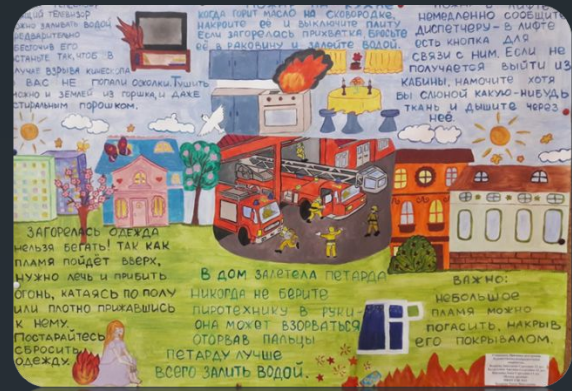 ТЕЛЕВИЗОР
ЗАЛИВАТЬ ВОДОЙ.
ПРЕДВАРИТЕЛЬНО
ЕГО
ЧТОБ В
СЛУЧАЕ ВЗРЫВА КИНЕСКОПА
ВАС НЕ ПОПАЛИ ОСКОЛКИ. ТУШИТЬ
МОЖНО И ЗЕМЛЕЙ ИЗ ГОРШКА, И ДАЖЕ
СТИРАЛЬНЫМ ПОРОШКОМ.
КОГДА ГОРИТ МАСЛО НА СКОВОРОДКЕ,
НАКРОЙТЕ ЕЁ И ВЫКЛЮЧИТЕ ПЛИТУ
ЕСЛИ ЗАГОРЕЛАСЬ ПРИХВАТКА, БРОСЬТЕ
ЕЁ В РАКОВИНУ И ЗАЛЕЙТЕ ВОДОЙ.
НЕМЕДЛЕННО СООБЩИТЕ
ДИСПЕТЧЕРУ - В ЛИФТЕ
ЕСТЬ КНОПКА ДЛЯ
СВЯЗИ С НИМ. ЕСЛИ НЕ
ПОЛУЧАЕТСЯ ВЫЙТИ ИЗ
КАБИНЫ, НАМОЧИТЕ ХОТЯ
БЫ СЛЮНОЙ КАКУЮ-НИБУДЬ
ТКАНЬ И ДЫШИТЕ ЧЕРЕЗ
НЕЁ.
ЗАГОРЕЛАСЬ ОДЕЖДА
НЕЛЬЗЯ БЕГАТЬ! ТАК КАК
ПЛАМЯ ПОЙДЁТ ВВЕРХ,
НУЖНО ЛЕЧЬ И ПРИБИТЬ
ОГОНЬ, КАТАЯСЬ ПО ПОЛУ
ИЛИ ПЛОТНО ПРИЖАВШИСЬ
К НЕМУ.
ПОСТАРАЙТЕСЬ
СБРОСИТЬ
ОДЕЖДУ.
В ДОМ ЗАЛЕТЕЛА ПЕТАРДА
НИКОГДА НЕ БЕРИТЕ
ПИРОТЕХНИКУ В РУКИ-
ОНА МОЖЕТ ВЗОРВАТЬСЯ
ОТОРВАВ ПАЛЬЦЫ
ПЕТАРДУ ЛУЧШЕ
ВСЕГО ЗАЛИТЬ ВОДОЙ.
ВАЖНО:
НЕБОЛЬШОЕ
ПЛАМЯ МОЖНО
ПОГАСИТЬ, НАКРЫВ
ЕГО ПОКРЫВАЛОМ.